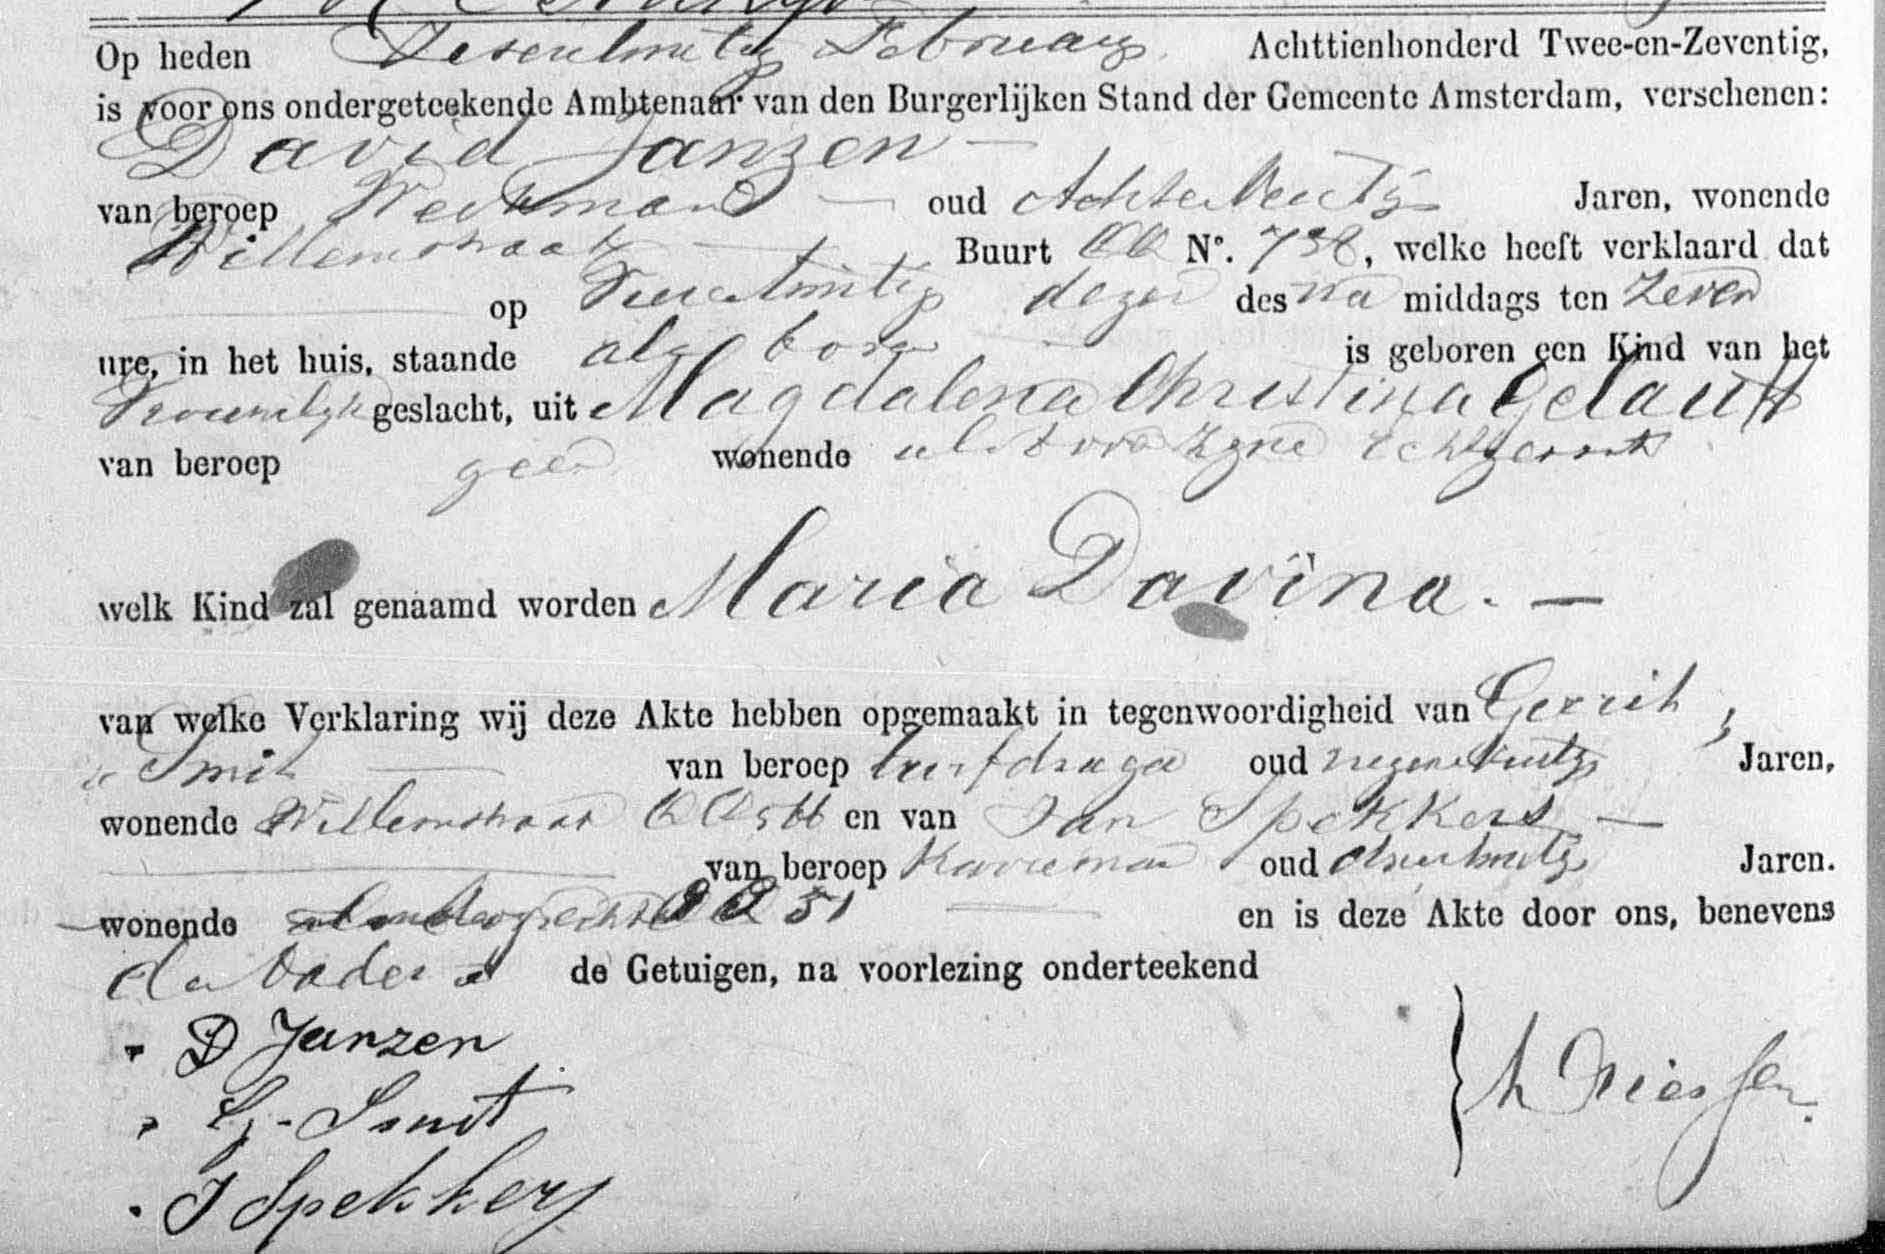 Op heden Zesentwintig Februarij Achttienhonderd Twee-en-Zeventig,
is voor ons ondergeteekende Ambtenaar van den Burgerlijken Stand der Gemeente Amsterdam, verschenen:
David Janzen
van beroep Werkman oud Achtenveertig Jaren, wonende
Willemstraat Buurt QQ N°. 738, welke heeft verklaard dat
op dezer des na middags ten Zeven
ure, in het huis, staande als boven is geboren een Kind van het
Vrouwelijk geslacht, uit Magdalena Christina Gelauff
van beroep geen wonende als voren zijne Echtgenoote
welk Kind zal genaamd worden Maria Davina. —
van welke Verklaring wij deze Akte hebben opgemaakt in tegenwoordigheid van Gerrit
Smit van beroep turfdrager oud Jaren,
wonende Willemstraat en van Jan Spekkers —
van beroep Karreman oud Jaren.
wonende 51 en is deze Akte door ons, benevens
de Vader en de Getuigen, na voorlezing onderteekend
D Janzen
G. Smit
J Spekkers